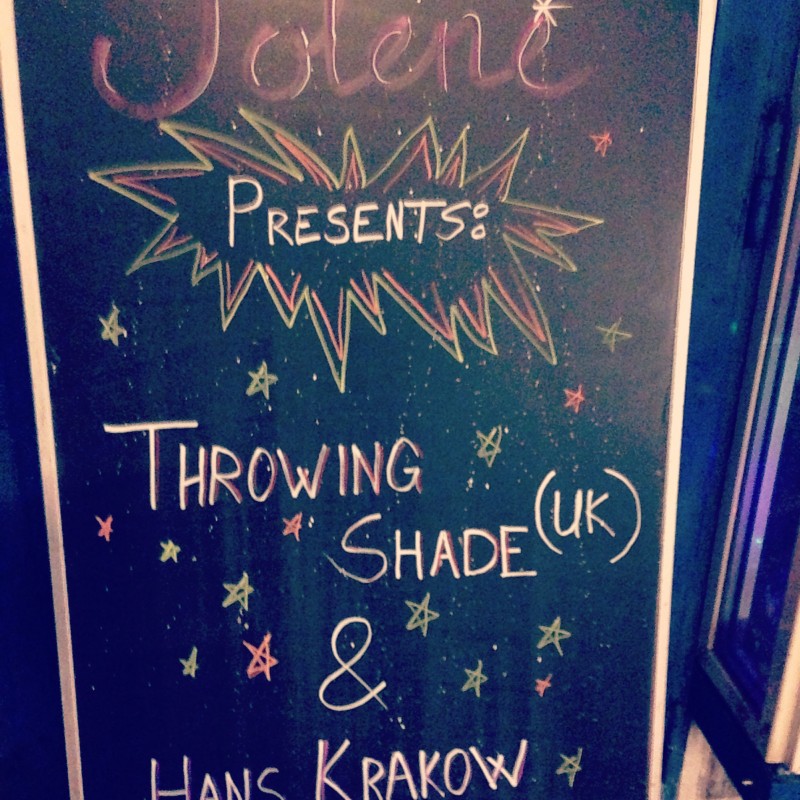 Jolene
PRESENTS:
THROWING
SHADE (UK)
&
HANS KRAKOW